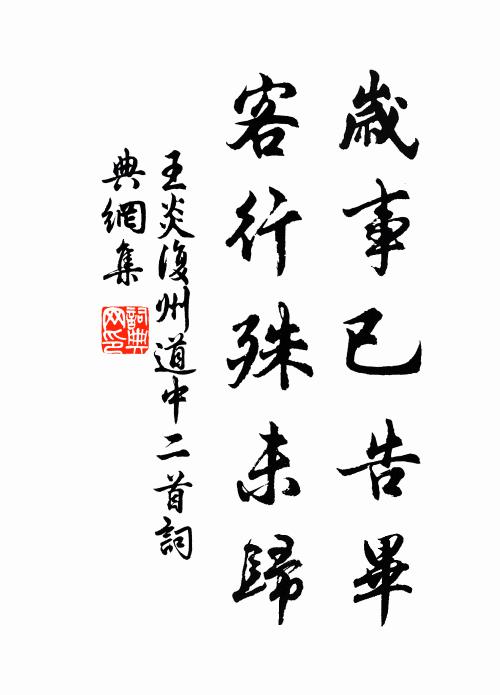 歲事已告畢
客行殊未歸
王炎復州道中二首詞
典網集
詞典网印